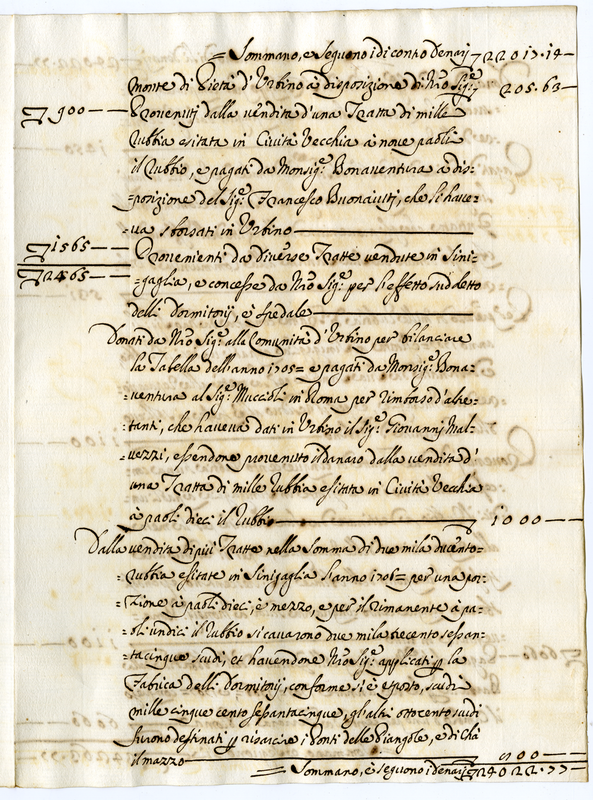 = Sommano, e seguono i di conto Denari 22017.14
Monte di Pietà d'Urbino à disposizione di Nrō Sigre 205.63
900 Provenuti dalla vendita d'una Tratta di mille
rubbia esitata in Cività Vecchia à nove paoli
il Rubbio, e pagati da Monsigr Bonaventura à dis=
=posizione del Sigr Francesco Buonaiuti, che si have=
=va sborsati in Urbino
1565 Provenienti da diverse Tratte vendute in Sini=
2465 =gaglia, e concesse da Nrō Sigre per l'effetto sudetto
delli Dormitorij, è
Donati da Nrō Sigre alla Comunità d'Urbino per bilanciare
la Tabella dell'anno 1705= e pagati da Monsigr Bona=
=ventura al Sigr Muccioli in Roma per rimborso d'altre=
=tanti, che haveva dati in Urbino il Sigr Giovanni Mal=
=vezzi, essendone provenuto il danaro dalla vendita d'
una Tratta di mille rubbia esitata in Cività Vecchia
à paoli dieci il Rubbio 1000
Dalla vendita di più Tratte nella somma di due mila ducento=
=rubbia esitate in Sinigaglia l'anno 1706= per una por=
=zione à paoli dieci, è mezzo, e per il rimanente à pa=
=oli undici il Rubbio si cavarono due mila trecento sessan=
=tacinque scudi, et havendone Nrō Sigre applicati p la
Fabrica delli Dormitorij, conforme si è esposto, scudi
mille cinque cento sessantacinque, gl'altri ottocento scudi
furono destinati p risarcire i Ponti delle Piangole, e di
il mazzo 800
= Sommano, è seguono i denari 24022.77